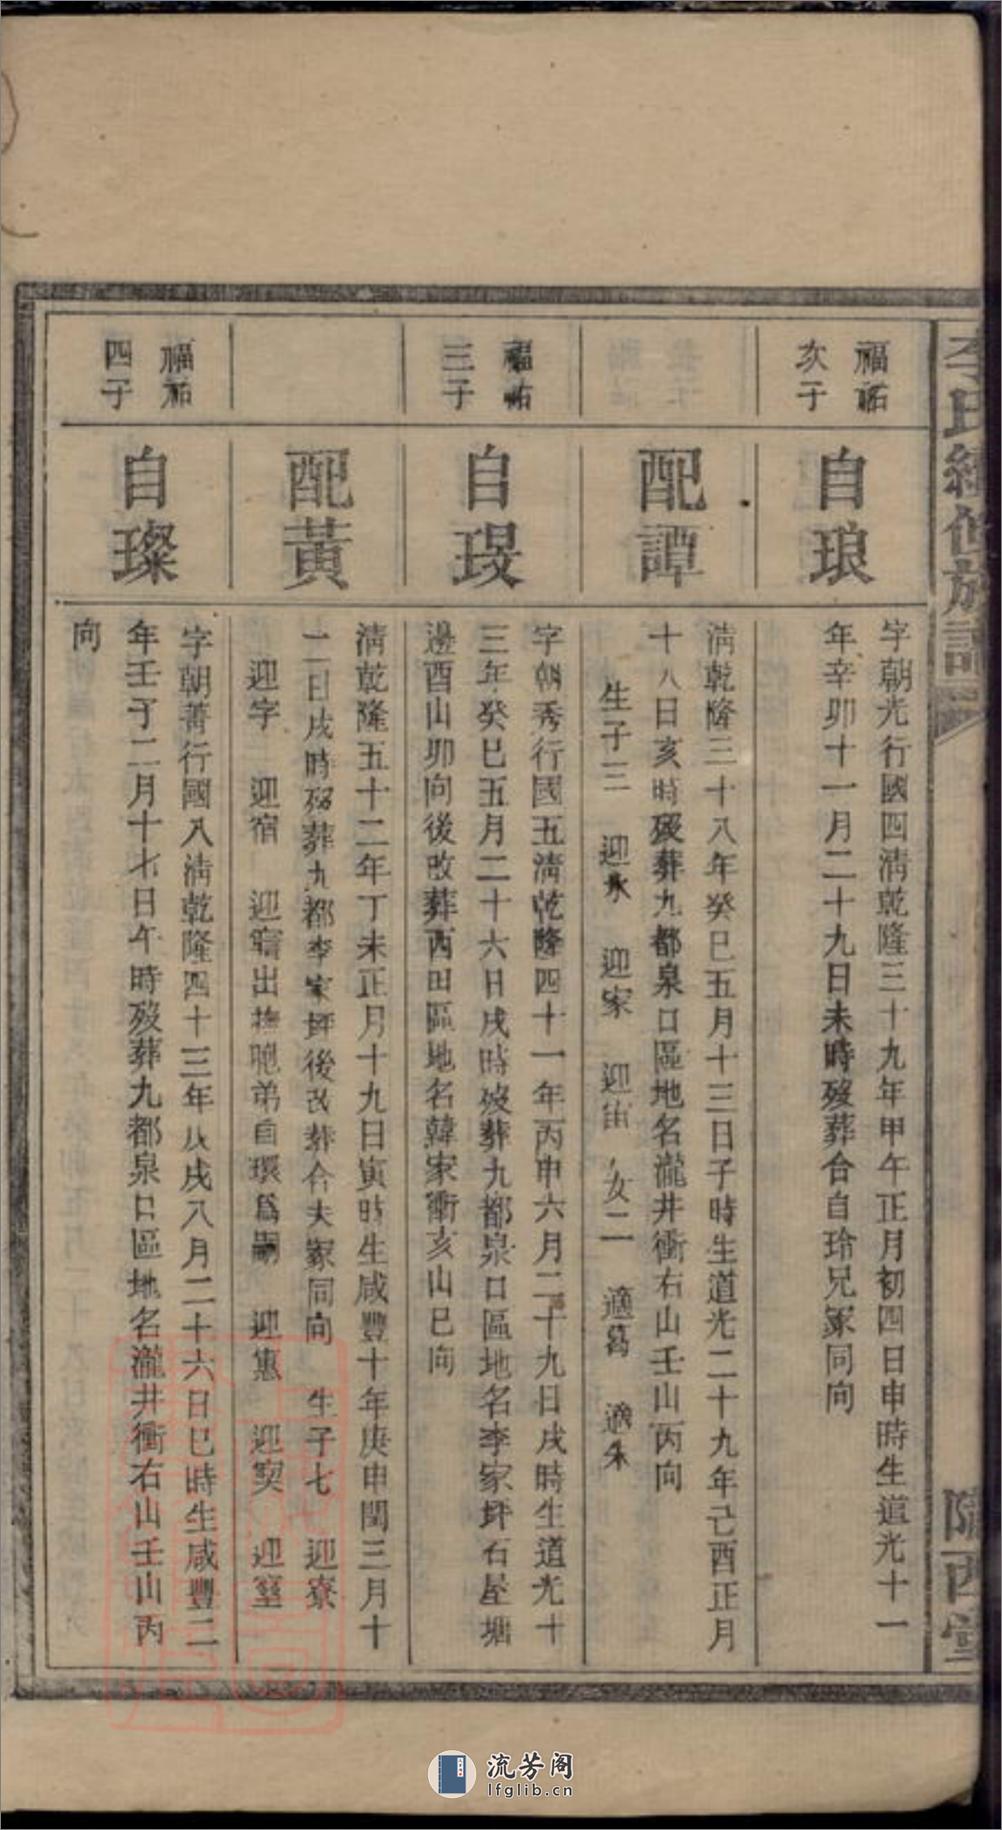 李氏續修族譜
隴西堂
福祐
次子
自琅
字朝光行國四清乾隆三十九年甲午正月初四日申時生道光十一
年辛卯十一月二十九日未時歿葬合自玲兄冢同向
配譚
清乾隆三十八年癸巳五月十三日子時生道光二十九年己酉正月
十八日亥時歿葬九都泉口區地名瀧井衝右山壬山丙向
生子三 迎永 迎家 迎宙 女二 適葛 適朱
福祐
三子
自琝
字朝秀行國五清乾隆四十一年丙申六月二十九日戌時生道光十
三年癸巳五月二十六日戌時歿葬九都泉口區地名李家坪石屋塘
邊酉山卯向後改葬西田區地名韓家衝亥山巳向
配黃
清乾隆五十二年丁未正月十九日寅時生咸豐十年庚申閏三月十
二日戌時歿葬九都李家坪後改葬合夫冢同向 生子七 迎寮
迎字 迎宿 迎𡩋出撫胞弟自環爲嗣 迎寭 迎窦 迎室
福祐
四子
自璨
字朝菁行國八清乾隆四十三年戊戌八月二十六日巳時生咸豐二
年壬子二月十七日午時歿葬九都泉口區地名瀧井衝右山壬山丙
向
流芳阁
lfglib.cn